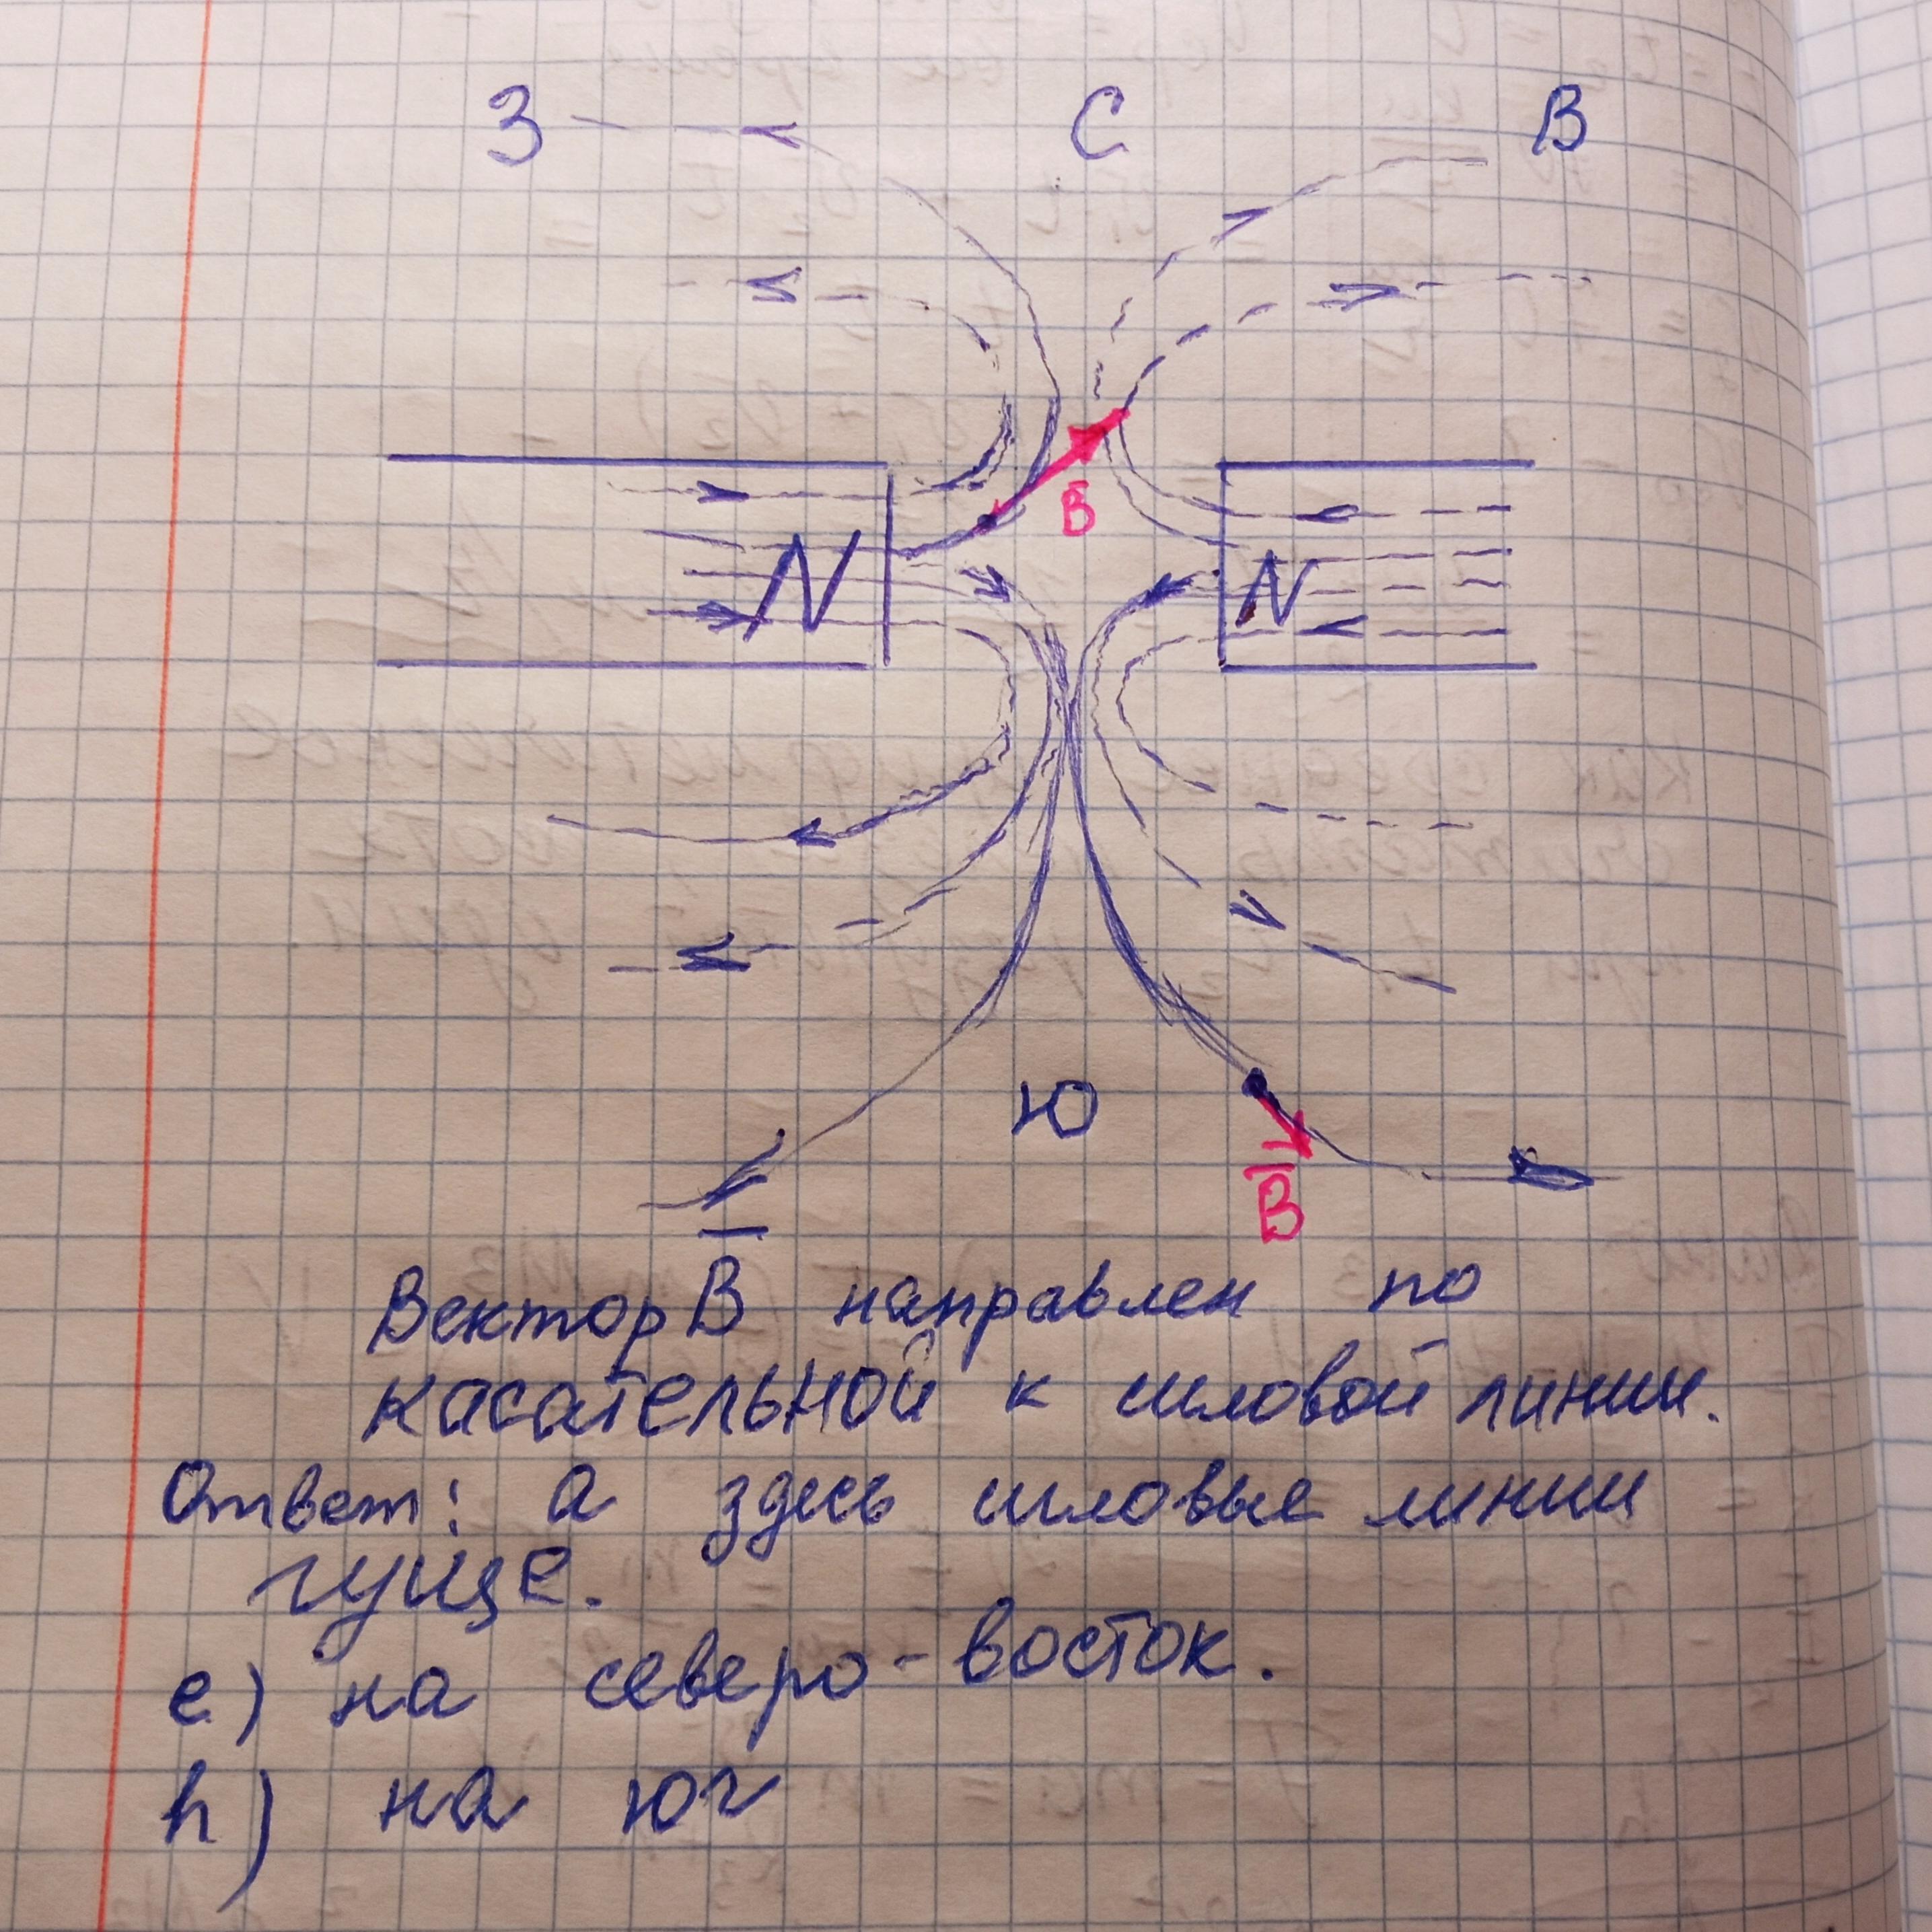 З С В
B
N N
Ю
B
Вектор B направлен по
касательной к силовой линии.
Ответ: а здесь силовые линии
гуще.
e) на северо-восток.
h) на юг